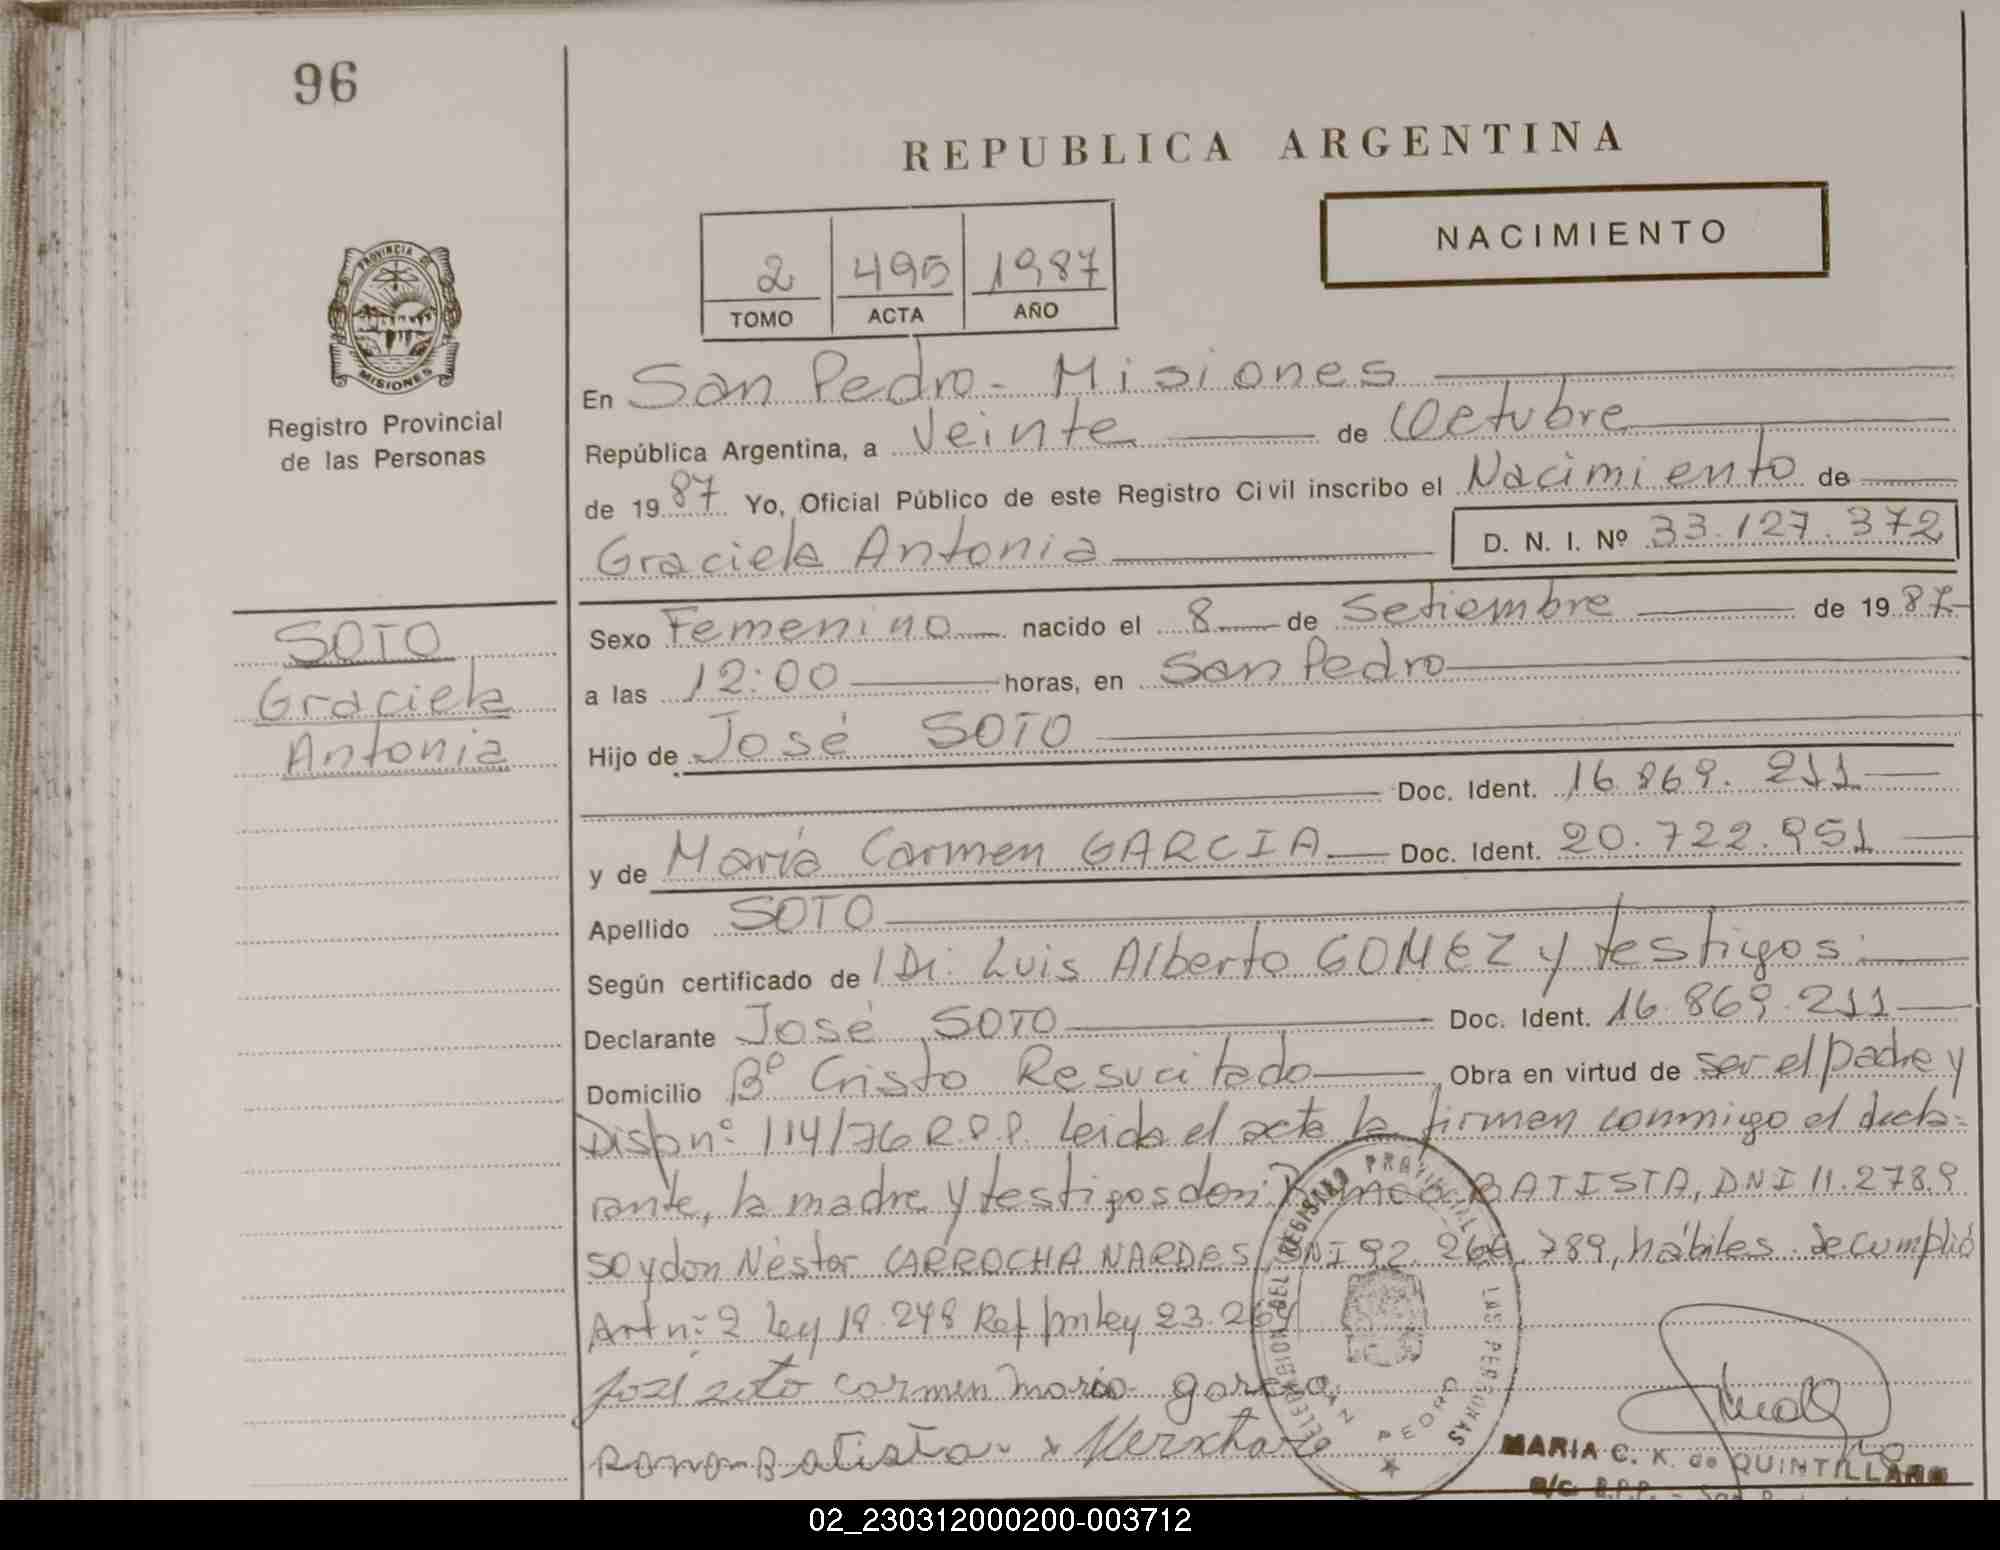 96
REPUBLICA ARGENTINA
NACIMIENTO
2 495 1987
TOMO ACTA AÑO
PROVINCIA DE
MISIONES
Registro Provincial
de las Personas
En San Pedro - Misiones
República Argentina, a Veinte de Octubre
de 1987 Yo, Oficial Público de este Registro Civil inscribo el Nacimiento de
Graciela Antonia D. N. I. Nº 33.127.372
SOTO
Graciela
Antonia
Sexo Femenino nacido el 8 de Setiembre de 1987
a las 12:00 horas, en San Pedro
Hijo de José SOTO
Doc. Ident. 16.869.211
y de María Carmen GARCIA Doc. Ident. 20.722.951
Apellido SOTO
Según certificado de Luis Alberto GOMEZ y testigos:
Declarante José SOTO Doc. Ident. 16.869.211
Domicilio Bº Cristo Resucitado Obra en virtud de ser el padre y
Dispnº 114/76 R.P.P. Leida el acta la firman conmigo el decla-
rante, la madre y testigos don: BATISTA, DNI 11.278.9
50 y don Néstor CARROCHA NARDES, DNI 92.266.789, hábiles. Se cumplió
Art nº 2 Ley 18.248 Ref por ley 23.264
José soto carmen maria garcia
Batista
DELEGACION DEL REGISTRO PROVINCIAL DE LAS PERSONAS
SAN PEDRO
MARIA C. K. de QUINTILLANO
02_230312000200-003712